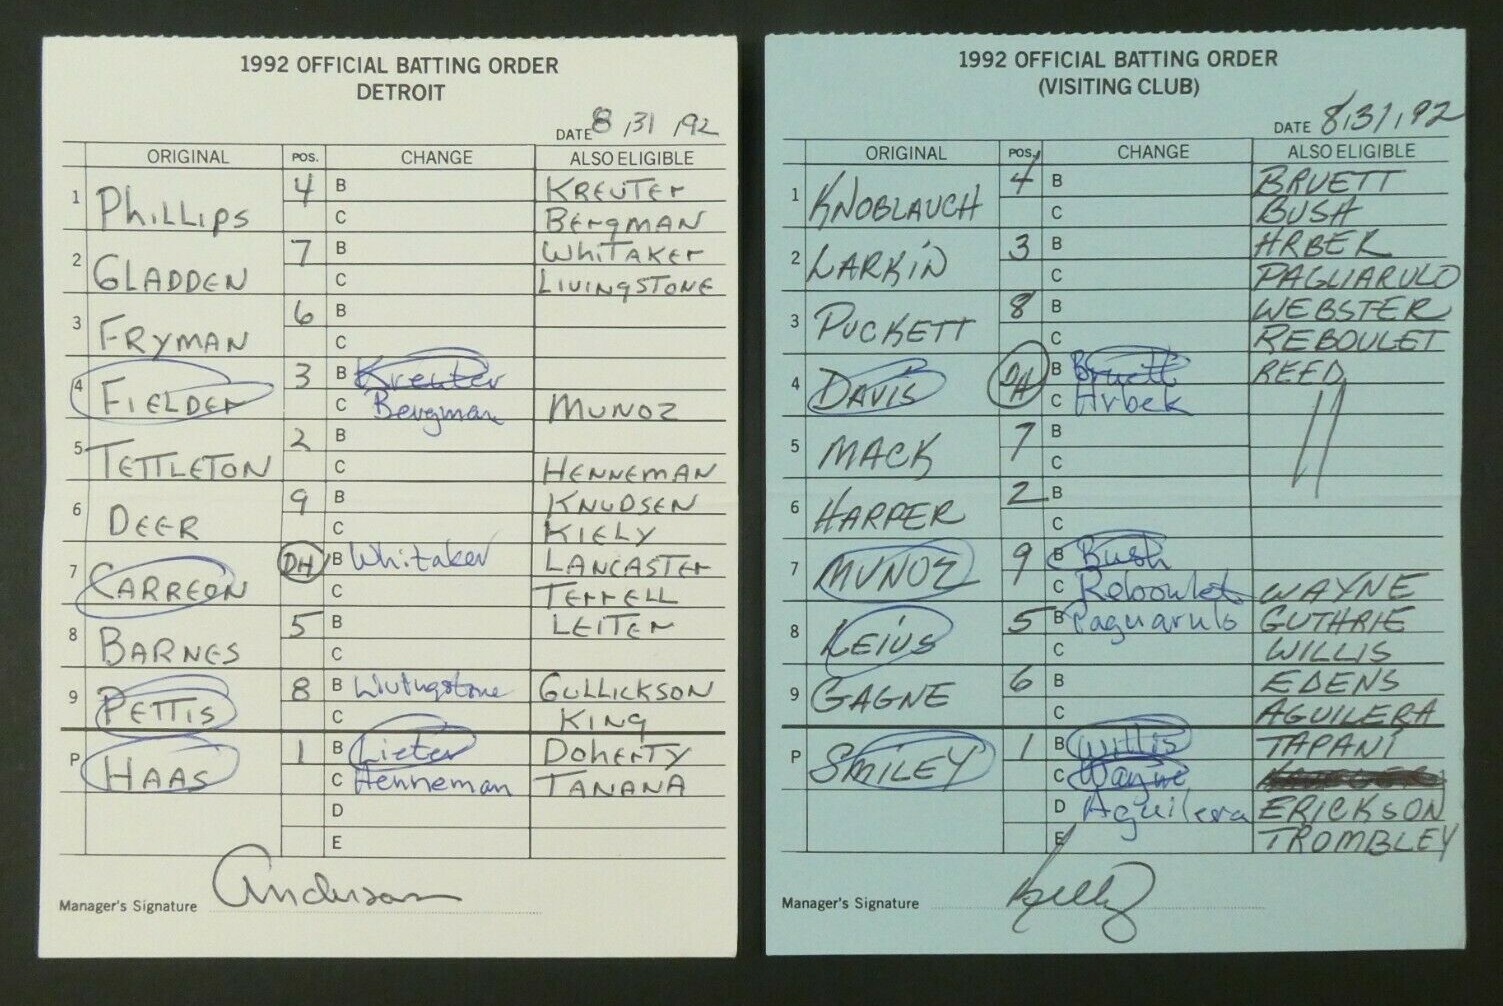 1992 OFFICIAL BATTING ORDER
DETROIT
DATE 8/31/92
ORIGINAL POS. CHANGE ALSO ELIGIBLE
1 PHILLIPS 4 B KREUTER
C BERGMAN
2 GLADDEN 7 B WHITAKER
C LIVINGSTONE
3 FRYMAN 6 B
C
4 FIELDER 3 B Kreuter
C Bergman MUNOZ
5 TETTLETON 2 B
C HENNEMAN
6 DEER 9 B KNUDSEN
C KIELY
7 CARREON DH B Whitaker LANCASTER
C TERRELL
8 BARNES 5 B LEITER
C
9 PETTIS 8 B Livingstone GULLICKSON
C KING
P HAAS 1 B Lieter DOHERTY
C Henneman TANANA
D
E
Manager's Signature Anderson
1992 OFFICIAL BATTING ORDER
(VISITING CLUB)
DATE 8/31/92
ORIGINAL POS. CHANGE ALSO ELIGIBLE
1 KNOBLAUCH 4 B BRUETT
C BUSH
2 LARKIN 3 B HRBEK
C PAGLIARULO
3 PUCKETT 8 B WEBSTER
C REBOULET
4 DAVIS DH B Bruett REED
C Hrbek
5 MACK 7 B
C
6 HARPER 2 B
C
7 MUNOZ 9 B Bush
C Reboulet WAYNE
8 LEIUS 5 B Paguarulo GUTHRIE
C WILLIS
9 GAGNE 6 B EDENS
C AGUILERA
P SMILEY 1 B Willis TAPANI
C Wayne
D Aguilera ERICKSON
E TROMBLEY
Manager's Signature Kelly